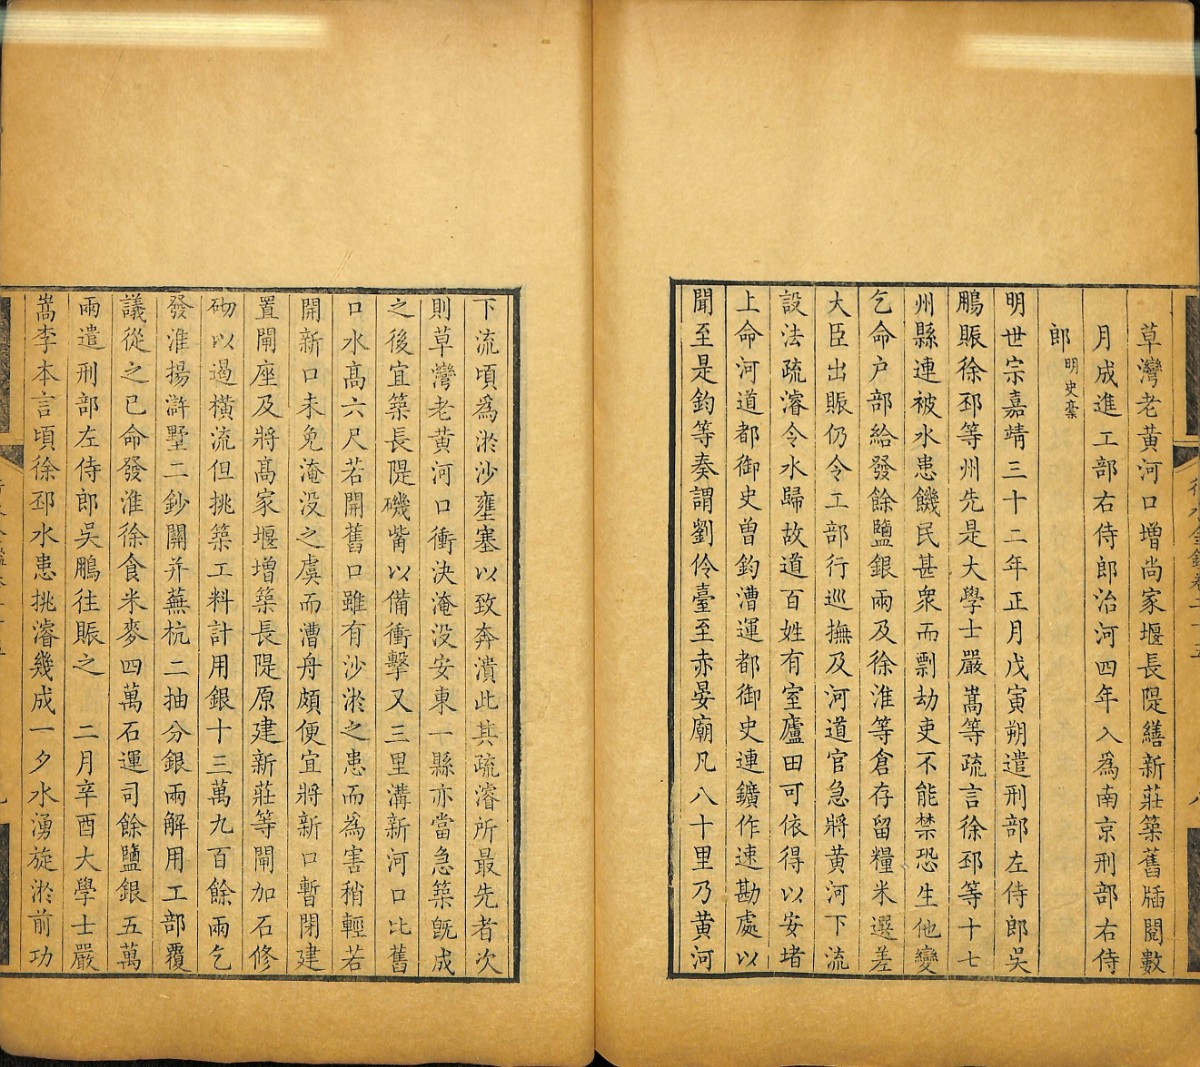 草灣老黃河口增尚家堰長隄繕新莊築舊牐閱數
月成進工部右侍郎治河四年入爲南京刑部右侍
郎明史稾
明世宗嘉靖三十二年正月戊寅朔遣刑部左侍郎吳
鵬賑徐邳等州先是大學士嚴嵩等疏言徐邳等十七
州縣連被水患饑民甚衆而剽劫吏不能禁恐生他變
乞命户部給發餘鹽銀兩及徐淮等倉存留糧米選差
大臣出賑仍令工部行巡撫及河道官急將黃河下流
設法疏濬令水歸故道百姓有室廬田可依得以安堵
上命河道都御史曾鈞漕運都御史連鑛作速勘處以
聞至是鈞等奏謂劉伶臺至赤晏廟凡八十里乃黃河
下流頃爲淤沙壅塞以致奔潰此其疏濬所最先者次
則草灣老黃河口衝決淹没安東一縣亦當急築旣成
之後宜築長隄磯觜以備衝擊又三里溝新河口比舊
口水高六尺若開舊口雖有沙淤之患而為害稍輕若
開新口未免淹没之虞而漕舟頗便宜將新口暫閉建
置閘座及將髙家堰增築長隄原建新莊等閘加石修
砌以遏橫流但挑築工料計用銀十三萬九百餘兩乞
發淮揚滸墅二鈔關并蕪杭二抽分銀兩解用工部覆
議從之已命發淮徐食米麥四萬石運司餘鹽銀五萬
兩遣刑部左侍郎吳鵬往賑之 二月辛酉大學士嚴
嵩李本言頃徐邳水患挑濬幾成一夕水湧旋淤前功